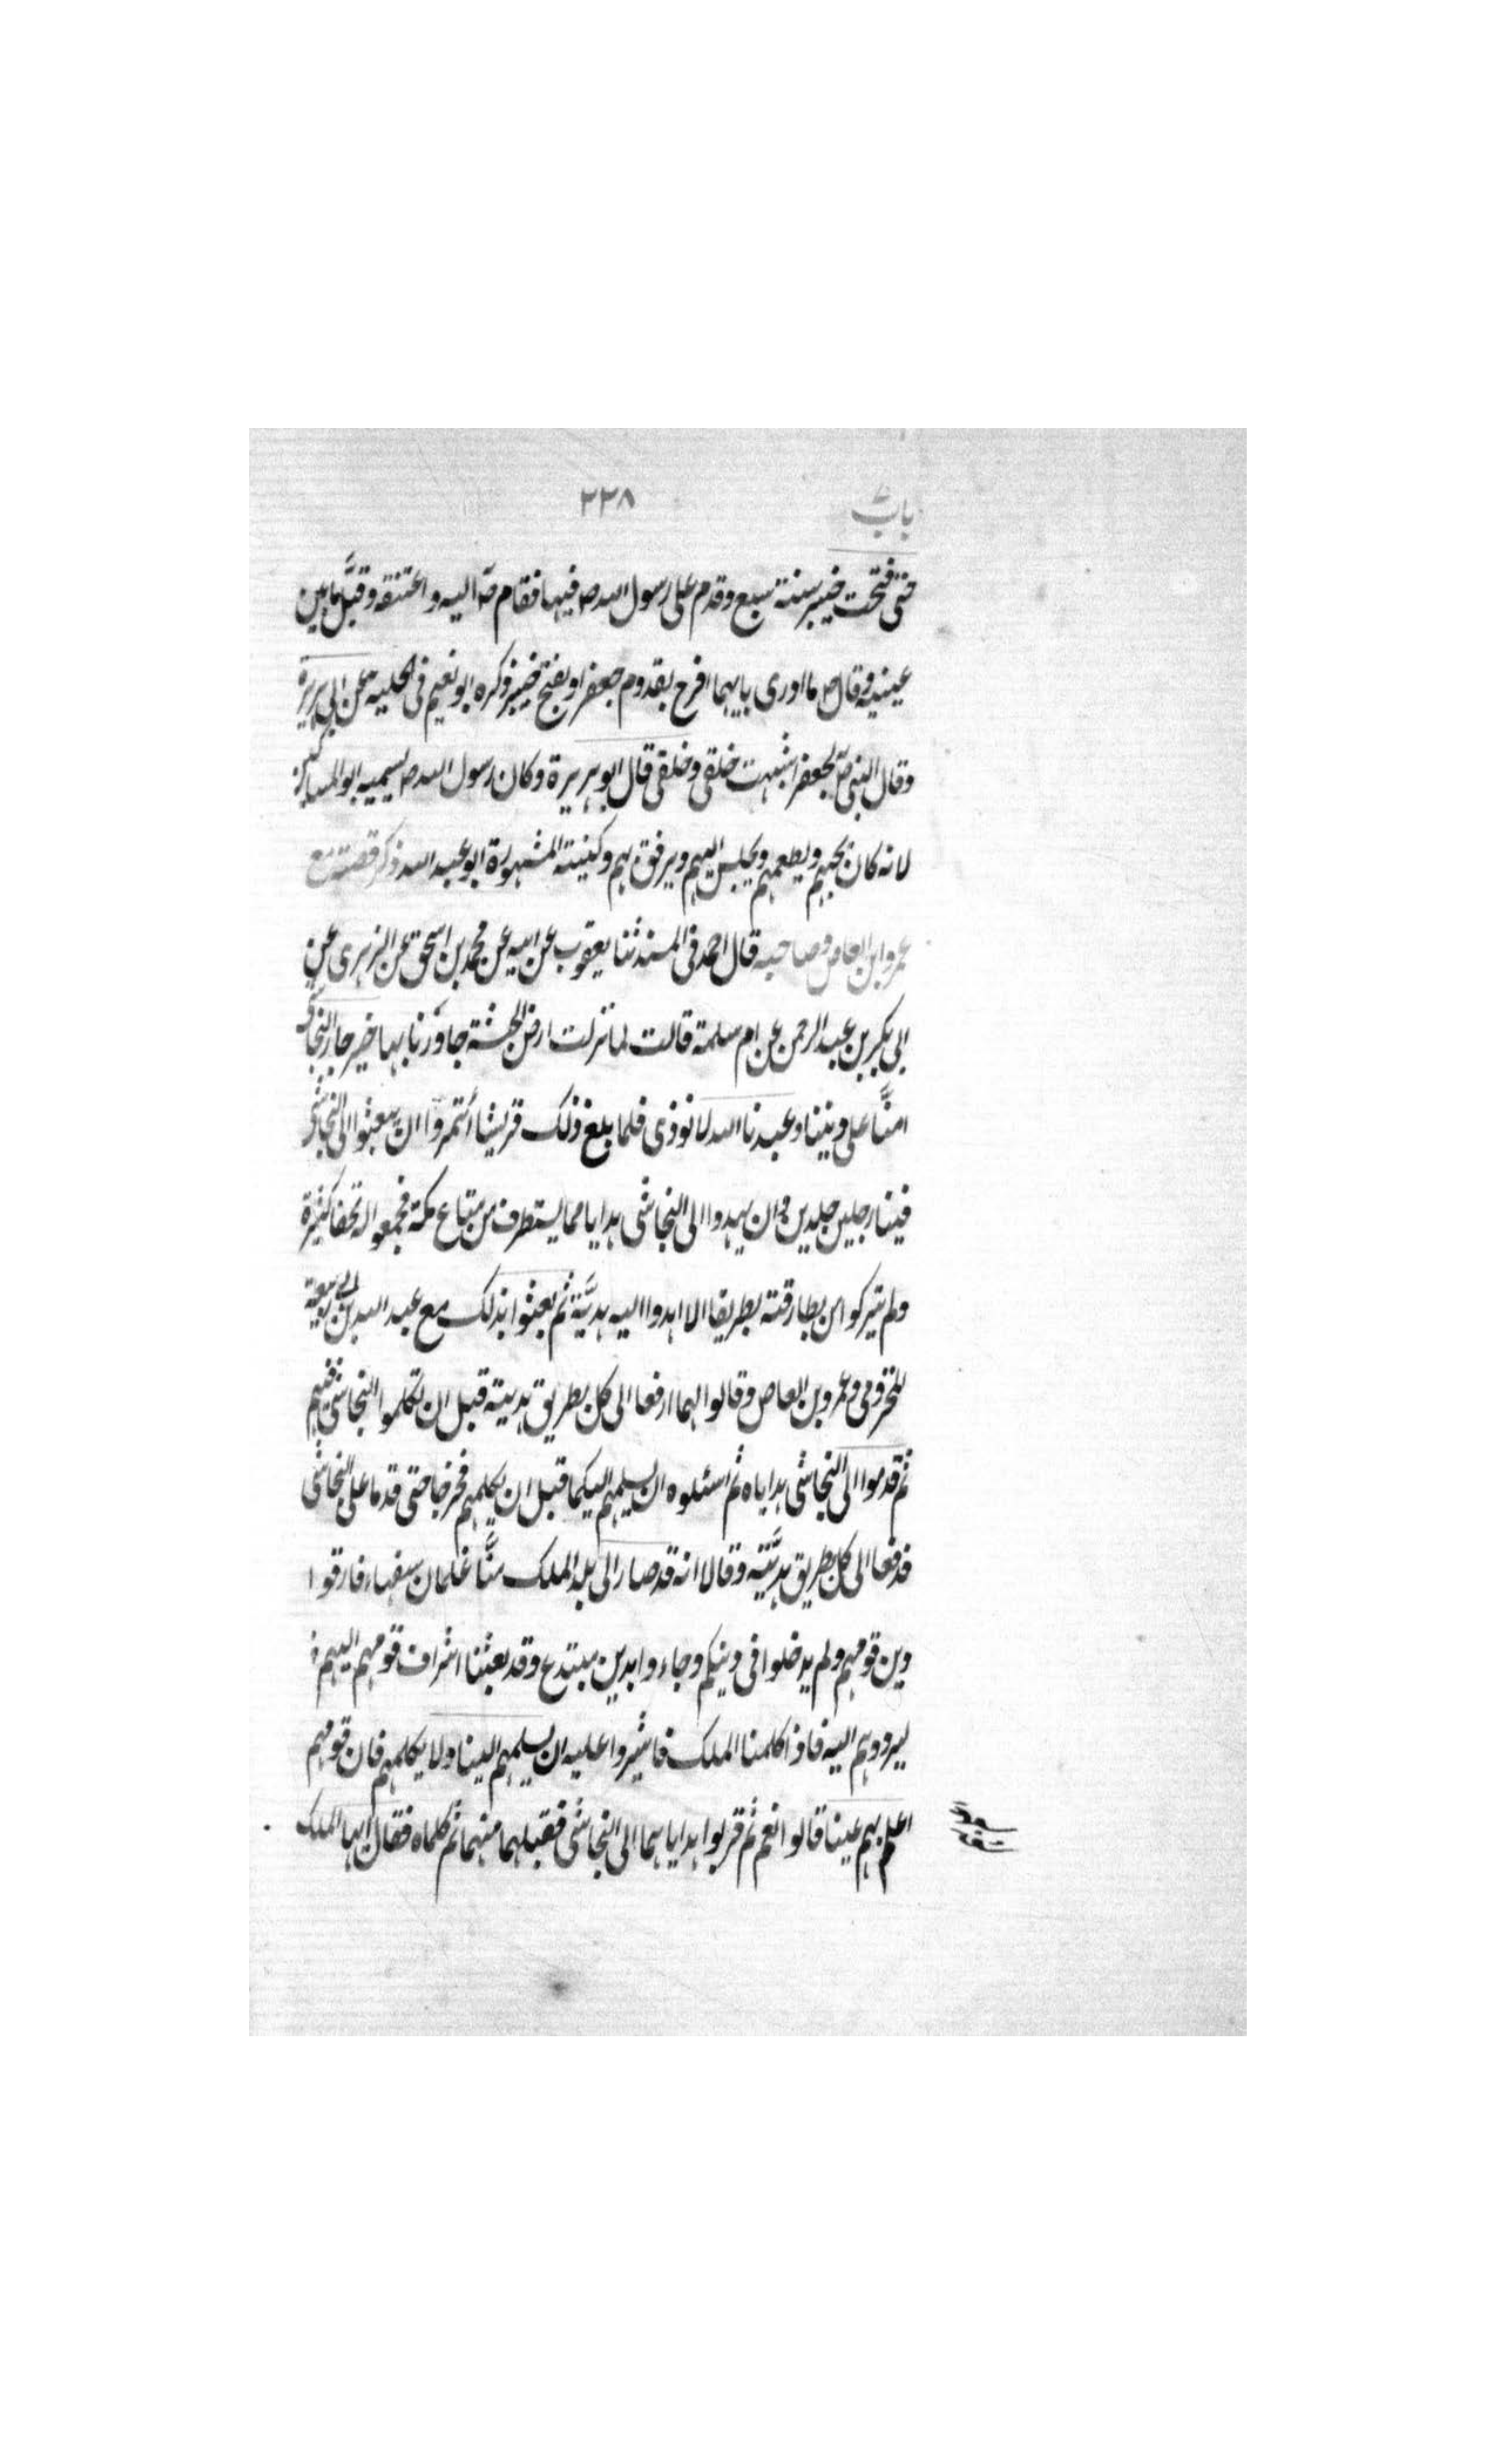 باب
٣٣٨
حتى فتحت خيبر سنة سبع وقدم على رسول الله صـ فيها فقام صـ اليه واعتنقه وقبَّل ما بين
عينيه وقال صـ ما ادرى بايهما افرح بقدوم جعفر او بفتح خيبر ذكره ابو نعيم فى الحلية عن ابى هريرة
وقال النبى صـ لجعفر اشبهت خلقى وخلقى قال ابو هريرة وكان رسول الله صـ يسميه ابو المساكين
لانه كان يحبهم ويطعمهم ويجلس اليهم ويرفق بهم وكنيته المشهورة ابو عبد الله ذكر قصته مع
عمرو ابن العاص وصاحبه قال احمد فى المسند ثنا يعقوب عن ابيه عن محمد بن اسحق عن الزهرى عن
ابى بكر بن عبد الرحمن عن ام سلمة قالت لما نزلت ارض الحبشة جاورنا بها خير جار النجاشى
امنَّا على ديننا وعبدنا الله لا نوذى فلما بلغ ذلك قريشا أتمروا ان يبعثوا الى النجاشى
فينا رجلين جلدين وان يهدوا الى النجاشى هدايا مما يستطرف من متاع مكة فجمعوا له تحفا كثيرة
ولم يتركوا من بطارقته بطريقا الا اهدوا اليه هديَّة ثم بعثوا بذلك مع عبد الله بن ابى ربيعة
المخزومى وعمرو بن العاص وقالوا لهما ارفعا الى كل بطريق هديته قبل ان تكلموا النجاشى فيهم
ثم قدموا الى النجاشى هداياه ثم اسئلوه ان يسلمهم اليكما قبل ان يكلمهم فخرجا حتى قدما على النجاشى
فدفعا الى كل بطريق هديَّته وقالا انه قد صار الى بلد الملك منَّا غلمان سفهاء فارقوا
دين قومهم ولم يدخلوا فى دينكم وجاءوا بدين مبتدع وقد بعثنا اشراف قومهم اليهم
ليردوهم اليه فاذا كلمنا الملك فاشيروا عليه ان يسلمهم الينا ولا يكلمهم فان قومهم
اعلم بهم عينا قالوا نعم ثم قربوا هداياهما الى النجاشى فقبلهما منهما ثم كلماه فقال ايها الملك